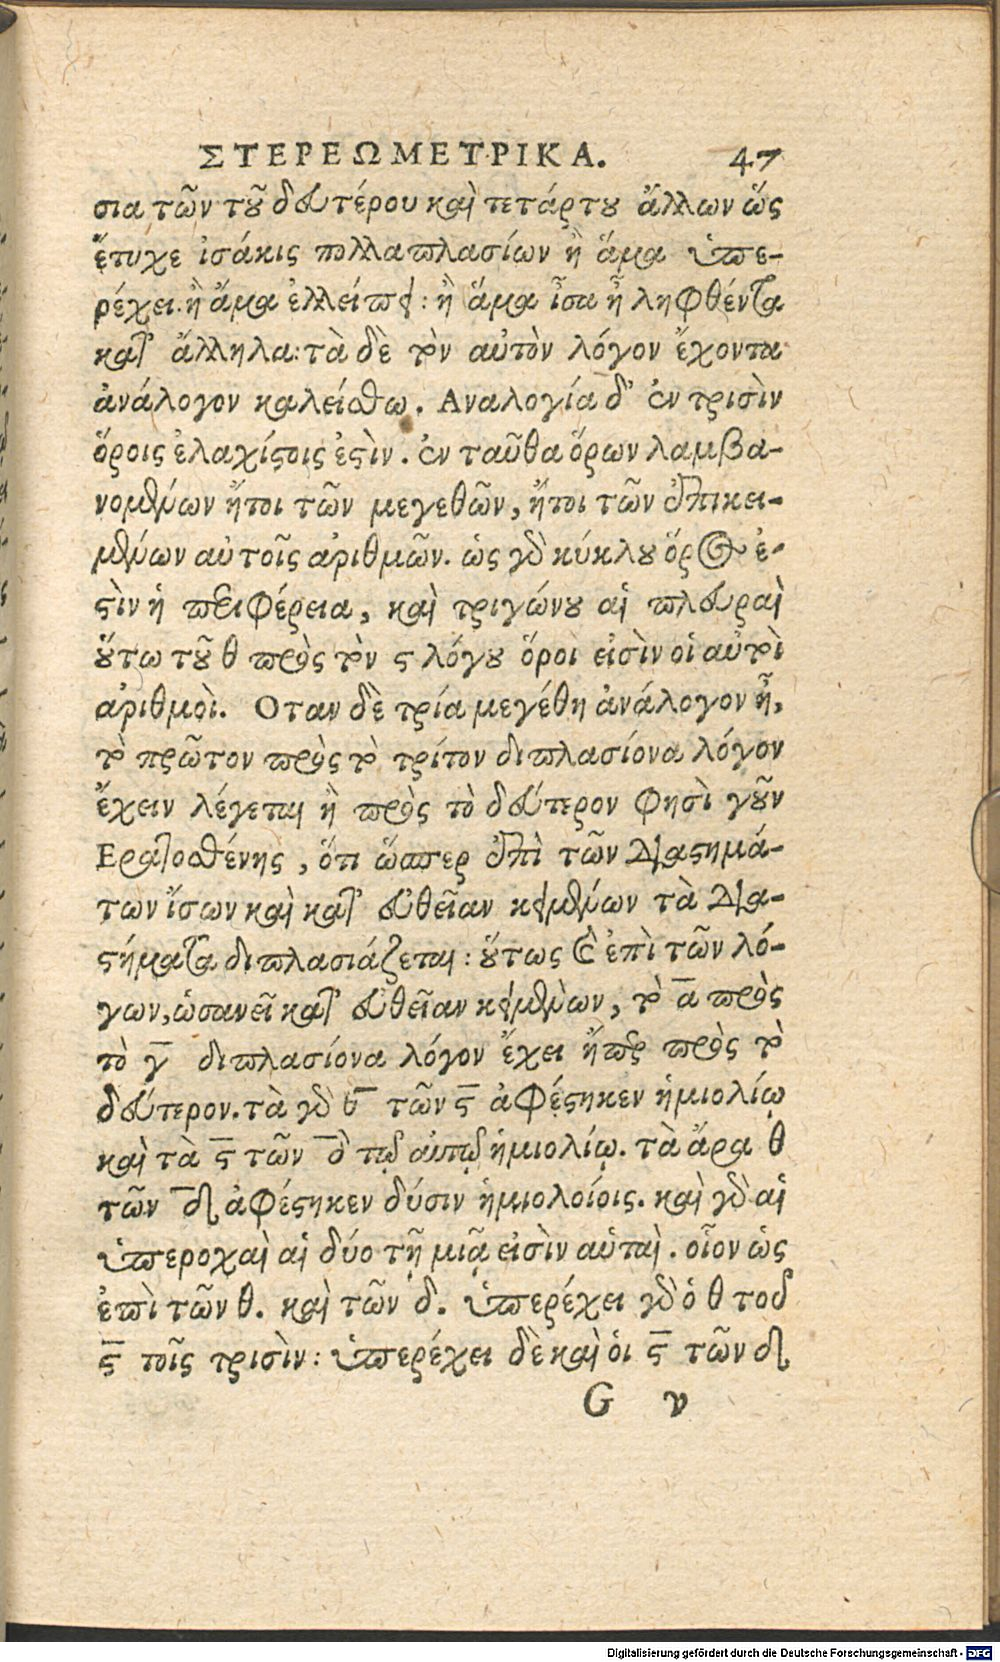 ΣΤΕΡΕΩΜΕΤΡΙΚΑ. 47
σια τῶν τȣ͂ δευτέρου καὶ τετάρτȣ ἄλλων ὥς
ἔτυχε ἰσάκις πολλαπλασίων ἢ ἅμα ὑπε-
ρέχει. ἢ ἅμα ἐλλείπει: ἢ ἅμα ἶσα ἦ ληφθέντα
κατ' ἄλληλα: τὰ δὲ τὸν αὐτὸν λόγον ἔχοντα
ἀνάλογον καλείσθω. Αναλογία δ' ἐν τρισὶν
ὅροις ἐλαχίϛοις ἐϛὶν. ἐν ταῦθα ὅρων λαμβα-
νομένων ἤτοι τῶν μεγεθῶν, ἤτοι τῶν ἐπικει-
μένων αὐτοῖς ἀριθμῶν. ὡς γὸ κύκλȣ ὅρος ἐ-
ϛὶν ἡ περιφέρεια, καὶ τριγώνȣ αἱ πλευραὶ
ȣ̔́τω τȣ͂ θ πρὸς τὸν ϛ λόγȣ ὅροι εἰσὶν οἱ αὐτοὶ
ἀριθμοὶ. Οταν δὲ τρία μεγέθη ἀνάλογον ἦ,
τὸ πρῶτον πρὸς τὸ τρίτον διπλασίονα λόγον
ἔχειν λέγεται ἢ πρὸς τὸ δεύτερον φησὶ γȣ͂ν
Ερατοσθένης, ὅτι ὥσπερ ἐπὶ τῶν διαϛημά-
των ἴσων καὶ κατ' εὐθεῖαν κειμένων τὰ δια-
ϛήματα διπλασιάζεται: ȣ̔́τως ϗ̀ ἐπὶ τῶν λό-
γων, ὡσανεῖ κατ' εὐθεῖαν κειμένων, τὸ α̅ πρὸς
τὸ γ̅ διπλασίονα λόγον ἔχει ἤπερ πρὸς τὸ
δεύτερον. τὰ γὸ θ̅ τῶν ϛ̅ ἀφέϛηκεν ἡμιολίῳ
καὶ τὰ ϛ̅ τῶν δ̅ τῷ αὐτῷ ἡμιολίῳ. τὰ ἄρα θ
τῶν δ̅ ἀφέϛηκεν δύσιν ἡμιολοίοις. καὶ γὸ αἱ
ὑπεροχαὶ αἱ δύο τῇ μιᾷ εἰσὶν αὑταὶ. οἷον ὡς
ἐπὶ τῶν θ. καὶ τῶν δ. ὑπερέχει γὸ ὁ θ τοῦ
ϛ̅ τοῖς τρισὶν: ὑπερέχει δὲ καὶ ὁι ϛ̅ τῶν δ
G v
Digitalisierung gefördert durch die Deutsche Forschungsgemeinschaft - DFG